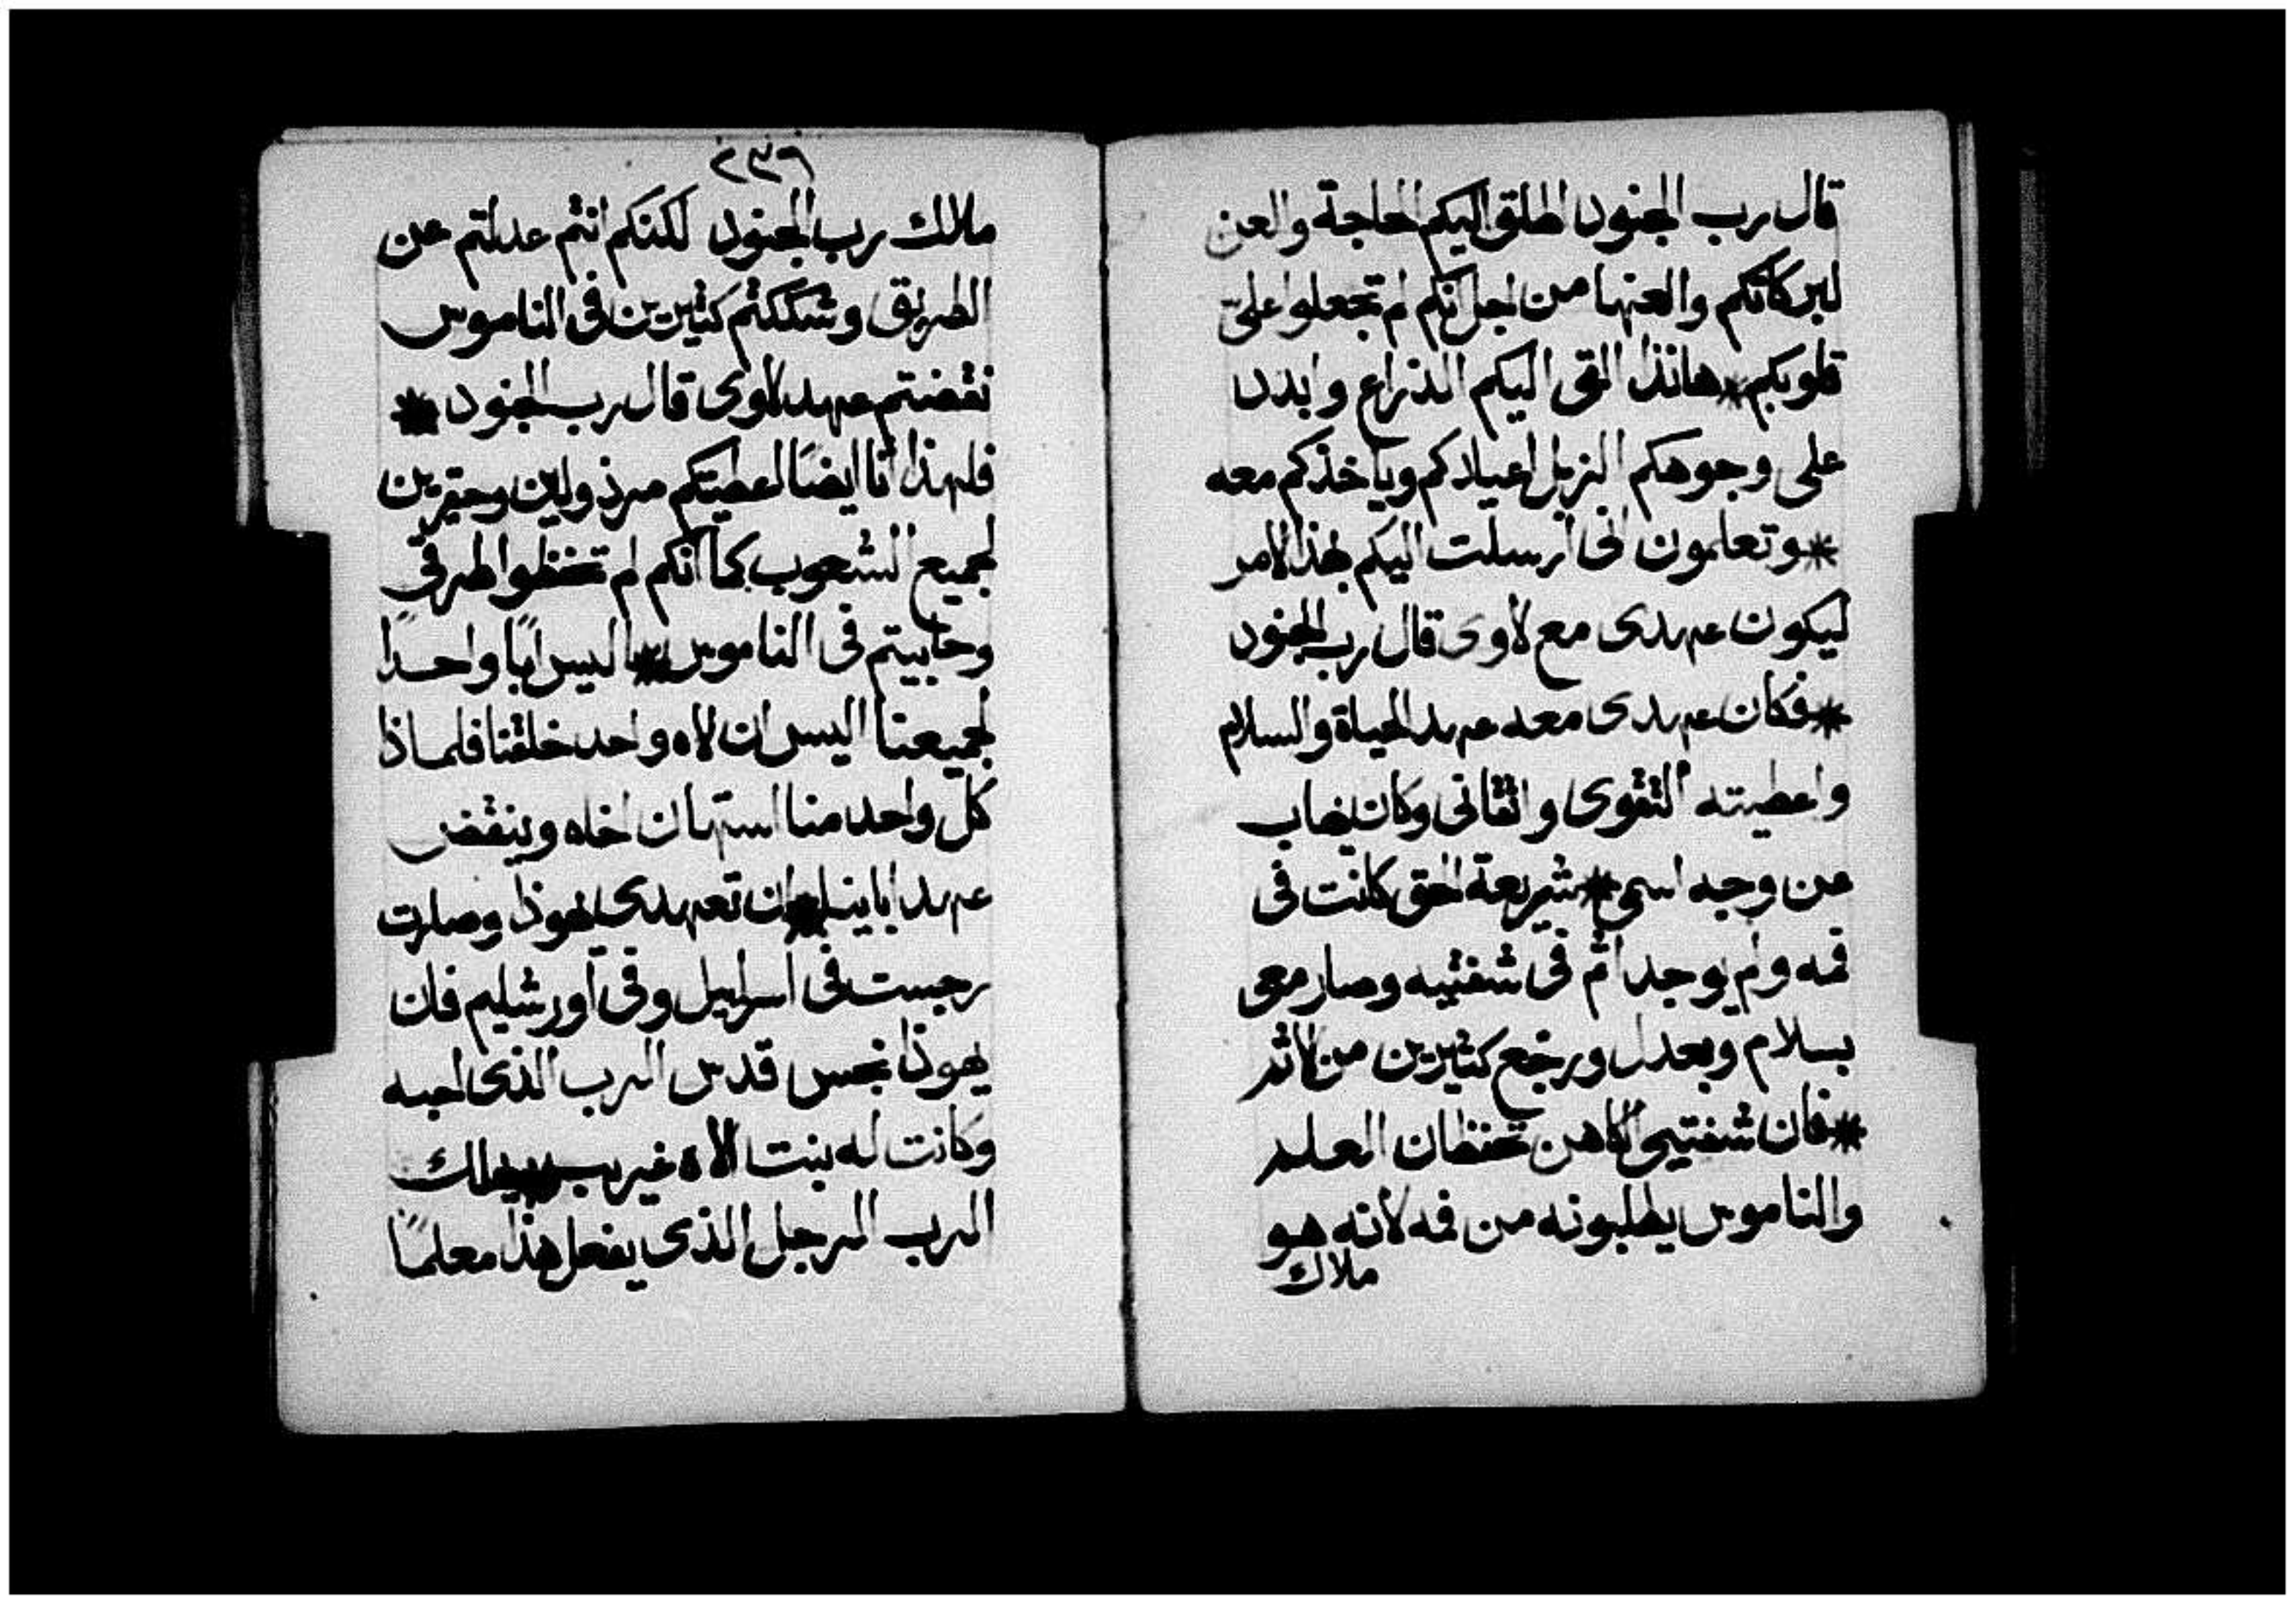 قال رب الجنود اطلق اليكم الحاجة والعن
لبركاتكم والعنها من اجل انكم لم تجعلوا على
قلوبكم * هانذا القى اليكم الذراع وابدد
على وجوهكم الزبل اعيادكم وياخذكم معه
* وتعلمون انى ارسلت اليكم بهذا الامر
ليكون عهدى مع لاوى قال رب الجنود
* فكان عهدى معه عهد الحياة والسلام
واعطيته التقوى واتقانى وكان يخاب
من وجه اسمى * شريعة الحق كانت فى
فمه ولم يوجد اثم فى شفتيه وصار معى
بسلام وبعدل ورجع كثيرين من الاثم
* فان شفتيى الكاهن تحفظان العلم
والناموس يطلبونه من فمه لانه هو
ملاك
٢٣٦
ملاك رب الجنود لكنكم انتم عدلتم عن
الطريق وشككتم كثيرين فى الناموس
نقضتم عهد لاوى قال رب الجنود *
فلهذا انا ايضًا اعطيتكم مرذولين وحقيرين
لجميع الشعوب كما انكم لم تحفظوا طرقى
وحابيتم فى الناموس * اليس ابًا واحدًا
لجميعنا اليس ان لاه واحد خلقنا فلماذا
كل واحد منا استهان اخاه وينقض
عهد اباينا * ان تعهدى يهوذا وصارت
رجست فى اسراييل وفى اورشليم فان
يهوذا نجس قدس الرب الذى احبه
وكانت له بنت الاه غريب يهلك
الرب الرجل الذى يفعل هذا معلمًا